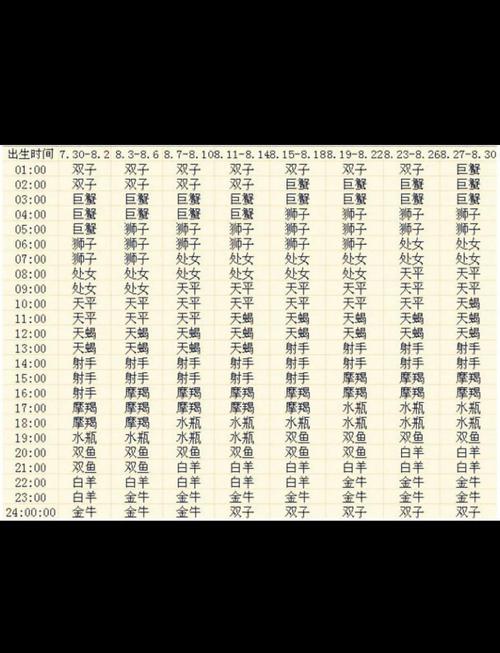 出生时间 7.30-8.2 8.3-8.6 8.7-8.10 8.11-8.14 8.15-8.18 8.19-8.22 8.23-8.26 8.27-8.30
01:00 双子 双子 双子 双子 双子 双子 双子 巨蟹
02:00 双子 双子 双子 双子 巨蟹 巨蟹 巨蟹 巨蟹
03:00 巨蟹 巨蟹 巨蟹 巨蟹 巨蟹 巨蟹 巨蟹 巨蟹
04:00 巨蟹 巨蟹 巨蟹 巨蟹 狮子 狮子 狮子 狮子
05:00 巨蟹 狮子 狮子 狮子 狮子 狮子 狮子 狮子
06:00 狮子 狮子 狮子 狮子 狮子 狮子 处女 处女
07:00 狮子 狮子 处女 处女 处女 处女 处女 处女
08:00 处女 处女 处女 处女 处女 处女 天平 天平
09:00 处女 处女 天平 天平 天平 天平 天平 天平
10:00 天平 天平 天平 天平 天平 天平 天平 天蝎
11:00 天平 天平 天平 天蝎 天蝎 天蝎 天蝎 天蝎
12:00 天蝎 天蝎 天蝎 天蝎 天蝎 天蝎 天蝎 天蝎
13:00 天蝎 天蝎 天蝎 天蝎 射手 射手 射手 射手
14:00 射手 射手 射手 射手 射手 射手 射手 射手
15:00 射手 射手 射手 射手 射手 摩羯 摩羯 摩羯
16:00 射手 摩羯 摩羯 摩羯 摩羯 摩羯 摩羯 摩羯
17:00 摩羯 摩羯 摩羯 摩羯 水瓶 水瓶 水瓶 水瓶
18:00 摩羯 水瓶 水瓶 水瓶 水瓶 水瓶 水瓶 水瓶
19:00 水瓶 水瓶 水瓶 水瓶 双鱼 双鱼 双鱼 双鱼
20:00 双鱼 双鱼 双鱼 双鱼 双鱼 双鱼 白羊 白羊
21:00 双鱼 双鱼 白羊 白羊 白羊 白羊 白羊 白羊
22:00 白羊 白羊 白羊 白羊 金牛 金牛 金牛 金牛
23:00 白羊 金牛 金牛 金牛 金牛 金牛 金牛 金牛
24:00:00 金牛 金牛 金牛 双子 双子 双子 双子 双子